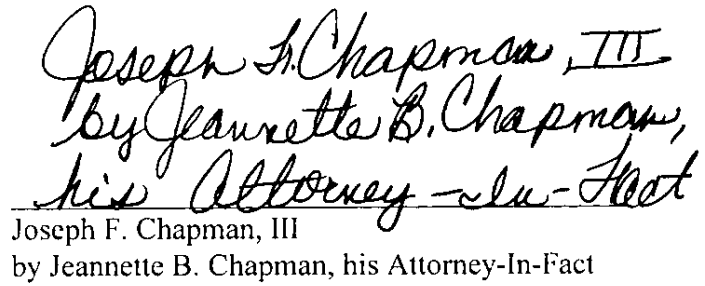 Joseph F. Chapman, III
by Jeannette B. Chapman,
his Attorney-In-Fact
Joseph F. Chapman, III
by Jeannette B. Chapman, his Attorney-In-Fact